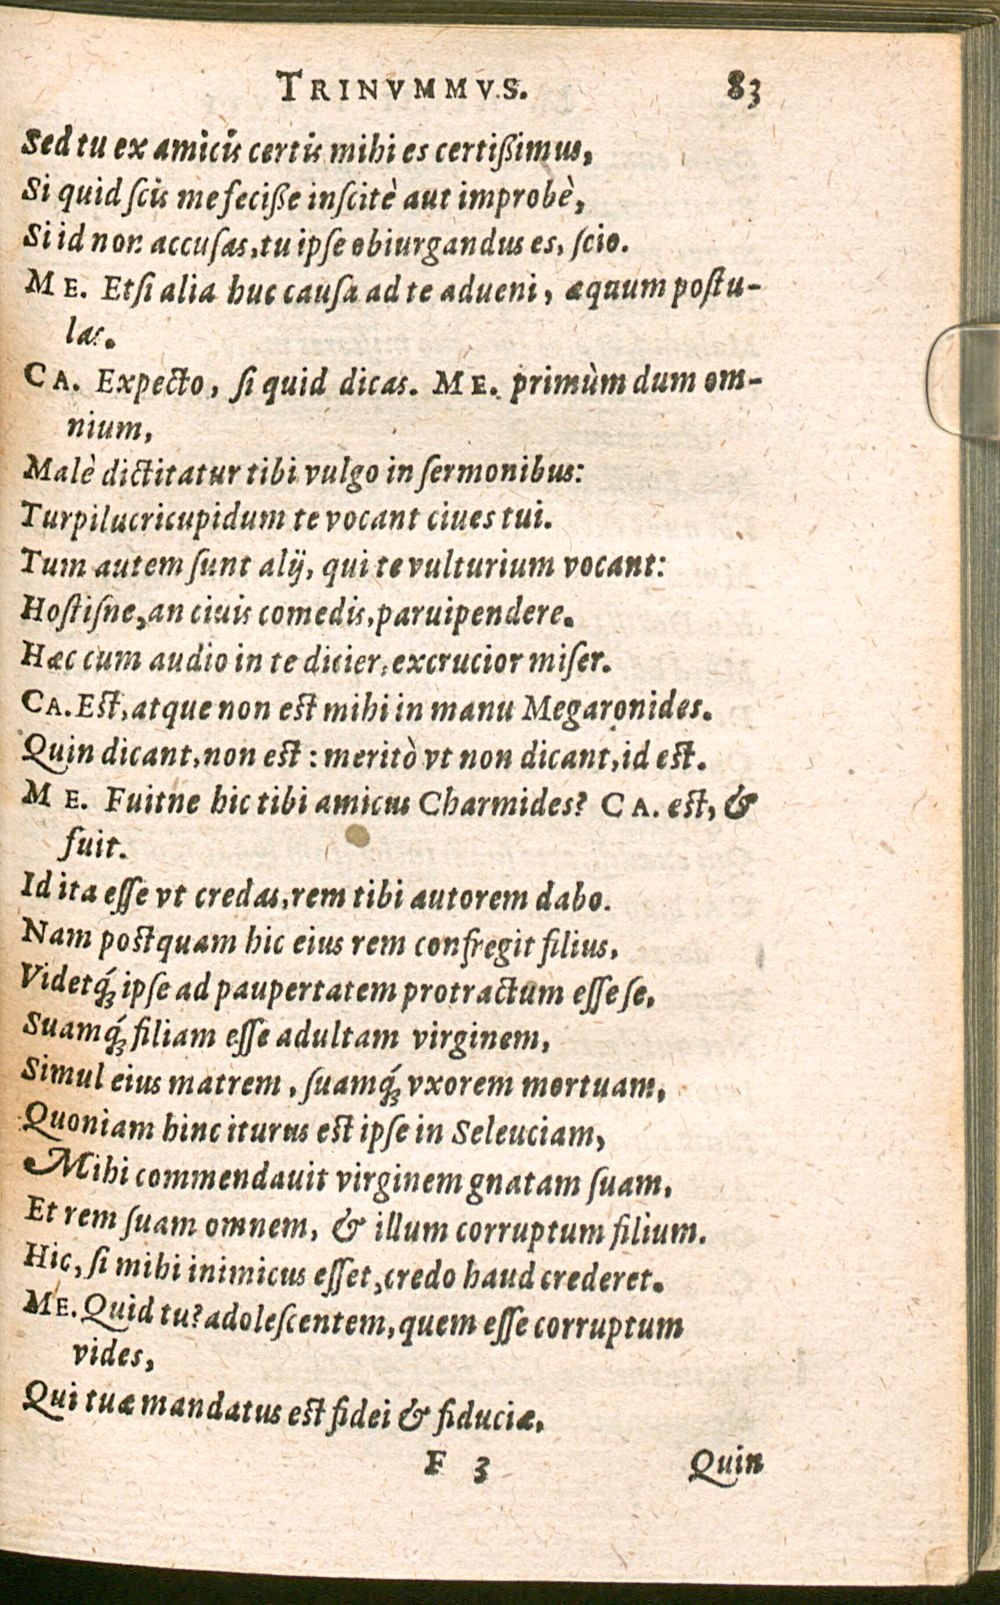 TRINVMMVS. 83
Sed tu ex amicis certis mihi es certißimus,
Si quid ſcis me feciße inſcitè aut improbè,
Si id non accuſas, tu ipſe obiurgandus es, ſcio.
ME. Etſi alia huc cauſa ad te adueni, æquum poſtu-
las.
CA. Expecto, ſi quid dicas. ME. primùm dum om-
nium,
Malè dictitatur tibi vulgo in ſermonibus:
Turpilucricupidum te vocant ciues tui.
Tum autem ſunt alij, qui te vulturium vocant:
Hoſtiſne, an ciuis comedis, paruipendere.
Hæc cum audio in te dicier, excrucior miſer.
CA. Eſt, atque non eſt mihi in manu Megaronides.
Quin dicant, non eſt: meritò vt non dicant, id eſt.
ME. Fuitne hic tibi amicus Charmides? CA. eſt, &
fuit.
Id ita eſſe vt credas, rem tibi autorem dabo.
Nam poſtquam hic eius rem confregit filius,
Videtq́; ipſe ad paupertatem protractum eſſe ſe,
Suamq́; filiam eſſe adultam virginem,
Simul eius matrem, ſuamq́; vxorem mortuam,
Quoniam hinc iturus eſt ipſe in Seleuciam,
Mihi commendauit virginem gnatam ſuam,
Et rem ſuam omnem, & illum corruptum filium.
Hic, ſi mihi inimicus eſſet, credo haud crederet.
ME. Quid tu? adoleſcentem, quem eſſe corruptum
vides,
Qui tuæ mandatus eſt fidei & fiduciæ,
F 3 Quin